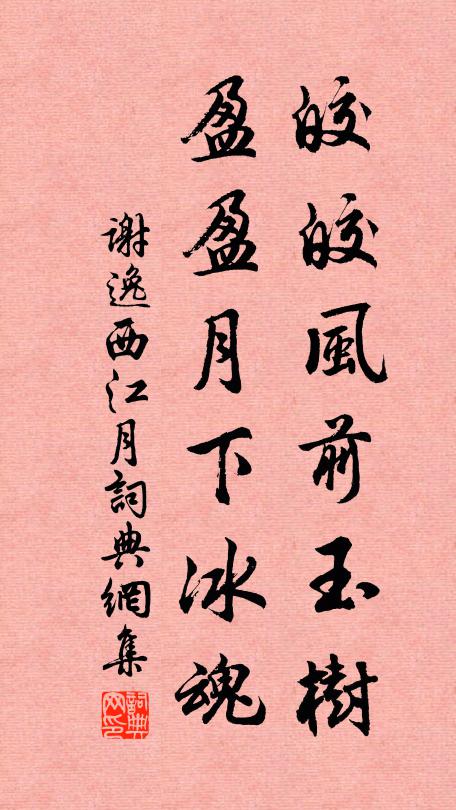 皎皎風前玉樹
盈盈月下冰魂
謝逸西江月詞典網集
詞典網印